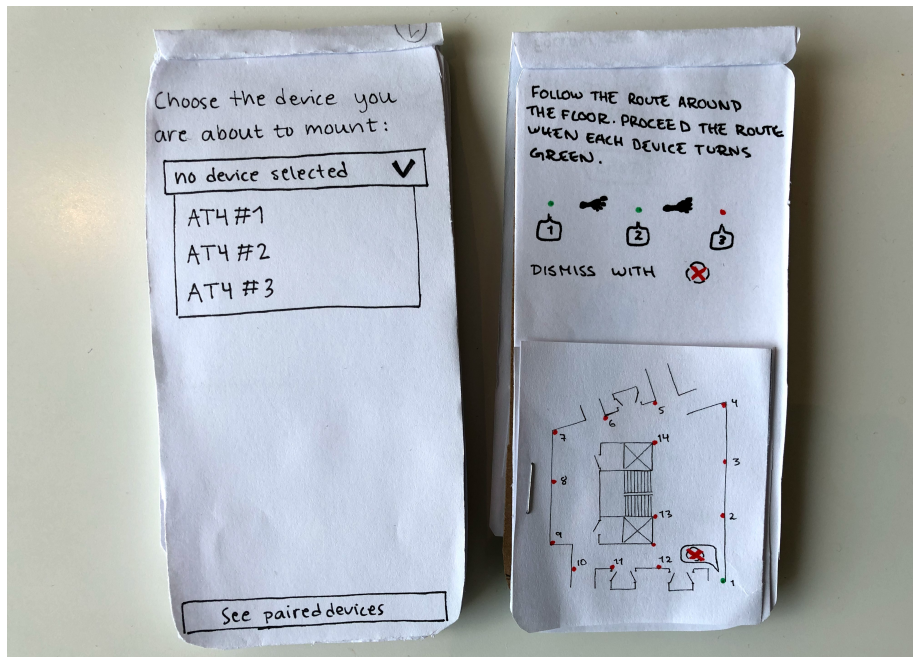 Choose the device you
are about to mount:
no device selected
AT4 #1
AT4 #2
AT4 #3
See paired devices
FOLLOW THE ROUTE AROUND
THE FLOOR. PROCEED THE ROUTE
WHEN EACH DEVICE TURNS
GREEN.
1 2 3
DISMISS WITH
4
5
6
7
14
3
8
13
2
9
10 11 12
1